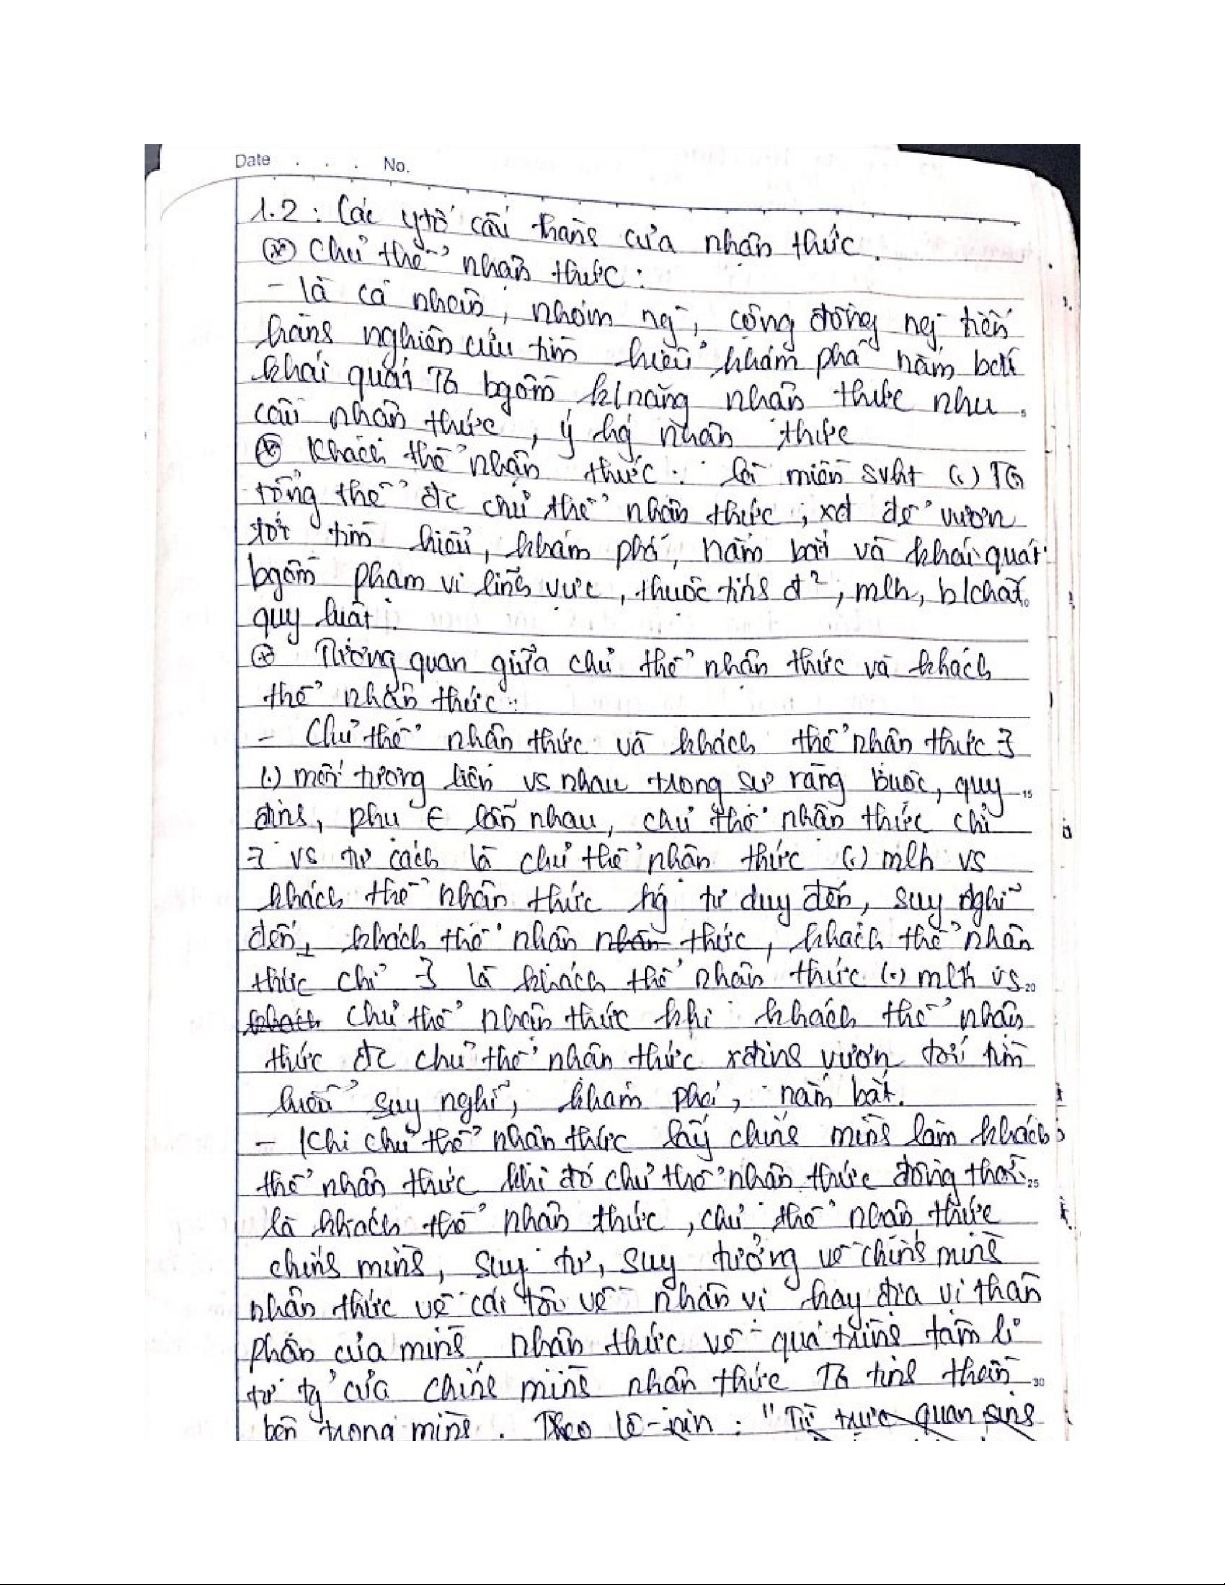 Date . . . No.
1.2 : Các ytố cấu thành của nhận thức.
(*) Chủ thể nhận thức :
- là cá nhân, nhóm ng, cộng đồng ng tiến
hành nghiên cứu tìm hiểu khám phá nắm bắt
khái quát TG bgồm k/năng nhận thức nhu
cầu nhận thức, ý hg nhận thức
(*) Khách thể nhận thức : là miền svht (.) TG
tổng thể đc chủ thể nhận thức, xđ để vươn
tới tìm hiểu, khám phá, nắm bắt và khái quát
bgồm phạm vi lĩnh vực, thuộc tính đ², mlh, b/chất
quy luật.
(*) Tương quan giữa chủ thể nhận thức và khách
thể nhận thức :
- Chủ thể nhận thức và khách thể nhận thức ∃
(.) mối tương liên vs nhau trong sự ràng buộc, quy
định, phụ ∈ lẫn nhau, chủ thể nhận thức chỉ
∃ vs tư cách là chủ thể nhận thức (.) mlh vs
khách thể nhận thức hg tư duy đến, suy nghĩ
đến, khách thể nhận nhận thức, khách thể nhận
thức chỉ ∃ là khách thể nhận thức (.) mlh vs
khách chủ thể nhận thức khi khách thể nhận
thức đc chủ thể nhận thức xđịnh vươn tới tìm
hiểu suy nghĩ, khám phá, nắm bắt.
- Khi chủ thể nhận thức lấy chính mình làm khách
thể nhận thức khi đó chủ thể nhận thức đồng thời
là khách thể nhận thức, chủ thể nhận thức
chính mình, suy tư, suy tưởng về chính mình
nhận thức về cái tôi về nhân vị hay địa vị thân
phận của mình nhận thức về quá trình tâm lí
tư tg của chính mình nhận thức TG tinh thần
bên trong mình. Theo Lê-nin : "Từ trực quan sinh